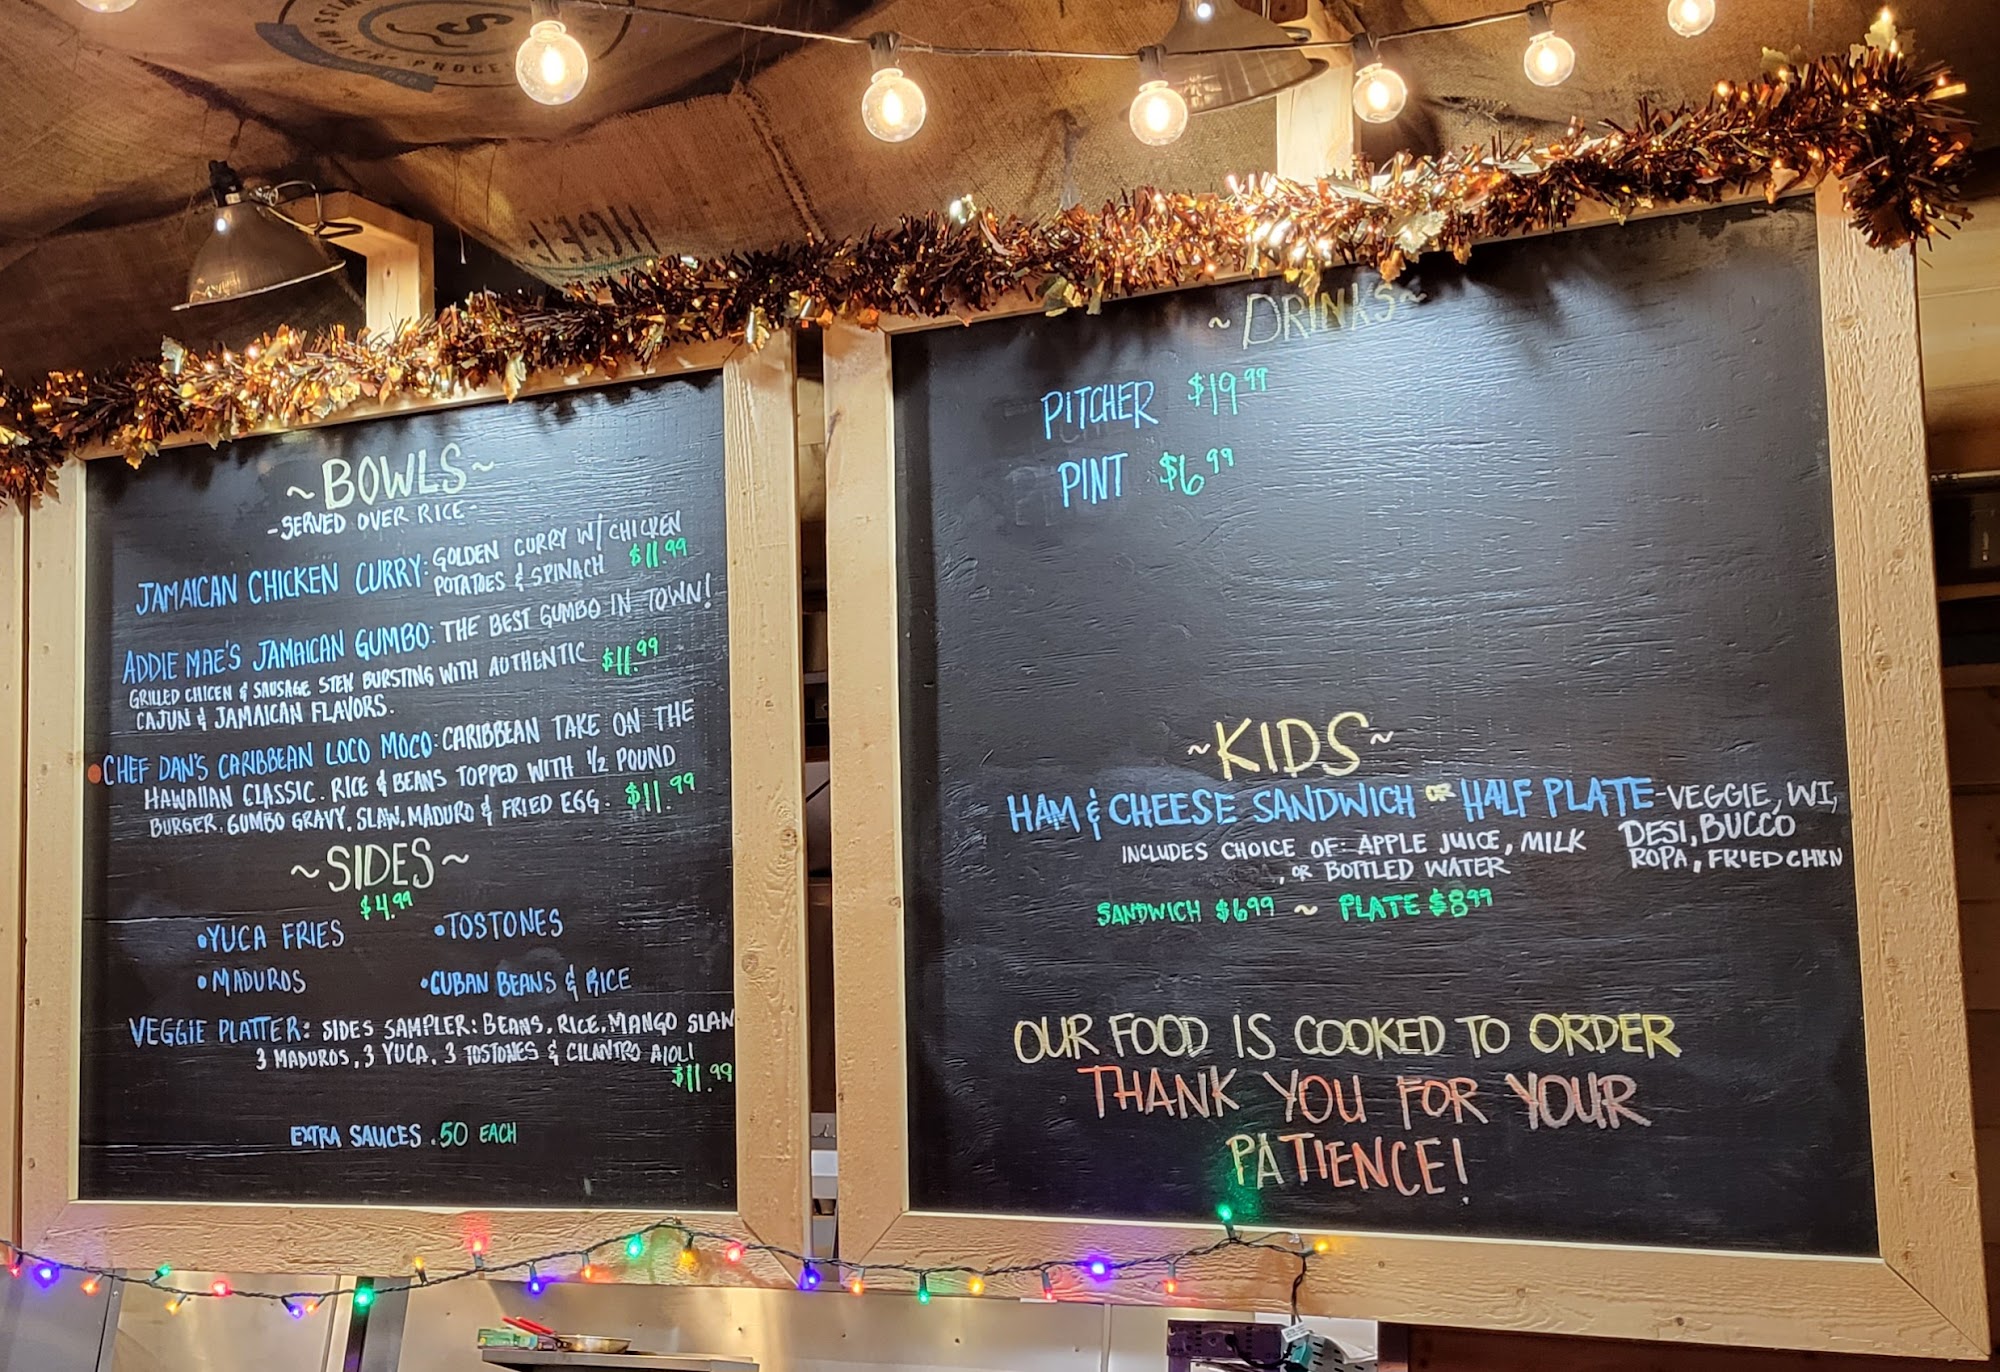 ~BOWLS~
-SERVED OVER RICE-
JAMAICAN CHICKEN CURRY: GOLDEN CURRY W/ CHICKEN
POTATOES & SPINACH $11.99
ADDIE MAE'S JAMAICAN GUMBO: THE BEST GUMBO IN TOWN!
GRILLED CHICEN & SAUSAGE STEW BURSTING WITH AUTHENTIC $11.99
CAJUN & JAMAICAN FLAVORS.
•CHEF DAN'S CARIBBEAN LOCO MOCO: CARIBBEAN TAKE ON THE
HAWAIIAN CLASSIC. RICE & BEANS TOPPED WITH 1/2 POUND
BURGER, GUMBO GRAVY, SLAW, MADURO & FRIED EGG. $11.99
~SIDES~
$4.99
•YUCA FRIES •TOSTONES
•MADUROS •CUBAN BEANS & RICE
VEGGIE PLATTER: SIDES SAMPLER: BEANS, RICE, MANGO SLAW
3 MADUROS, 3 YUCA, 3 TOSTONES & CILANTRO AIOLI
$11.99
EXTRA SAUCES .50 EACH
~DRINKS~
PITCHER $19.99
PINT $6.99
~KIDS~
HAM & CHEESE SANDWICH OR HALF PLATE-VEGGIE, WI,
DESI, BUCCO
ROPA, FRIED CHKN
INCLUDES CHOICE OF: APPLE JUICE, MILK
, OR BOTTLED WATER
SANDWICH $6.99 ~ PLATE $8.99
OUR FOOD IS COOKED TO ORDER
THANK YOU FOR YOUR
PATIENCE!